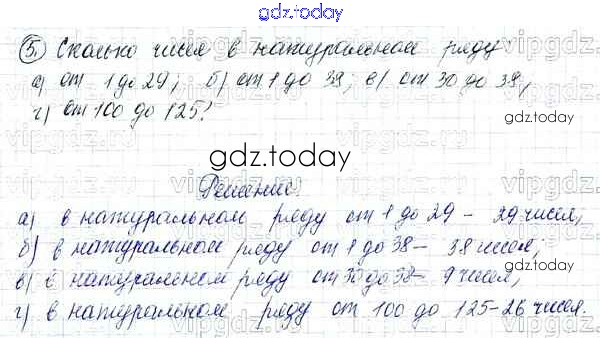 gdz.today
5. Сколько чисел в натуральном ряду
а) от 1 до 29; б) от 1 до 38; в) от 30 до 38;
г) от 100 до 125?
gdz.today
gdz.today
Решение
а) в натуральном ряду от 1 до 29 – 29 чисел;
б) в натуральном ряду от 1 до 38 – 38 чисел;
в) в натуральном ряду от 30 до 38 – 9 чисел;
г) в натуральном ряду от 100 до 125 – 26 чисел.
gdz.today